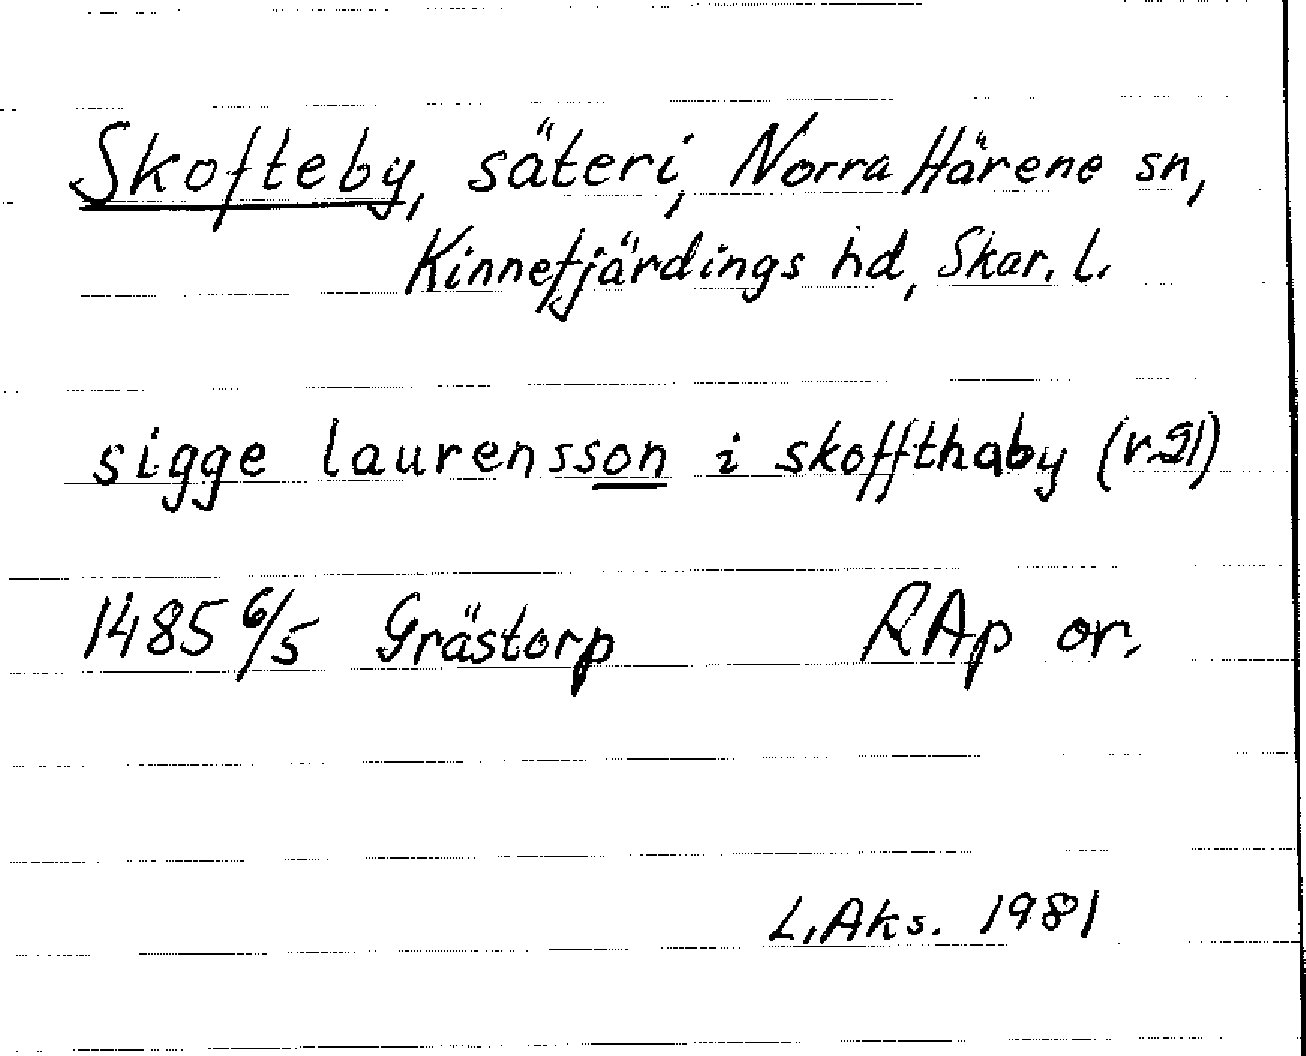 Skofteby, säteri, Norra Härene sn,
Kinnefjärdings hd, Skar. l.
sigge laurensson i skoffthaby (r 21)
1485 6/5 Grästorp RAp or.
L. Aks. 1981